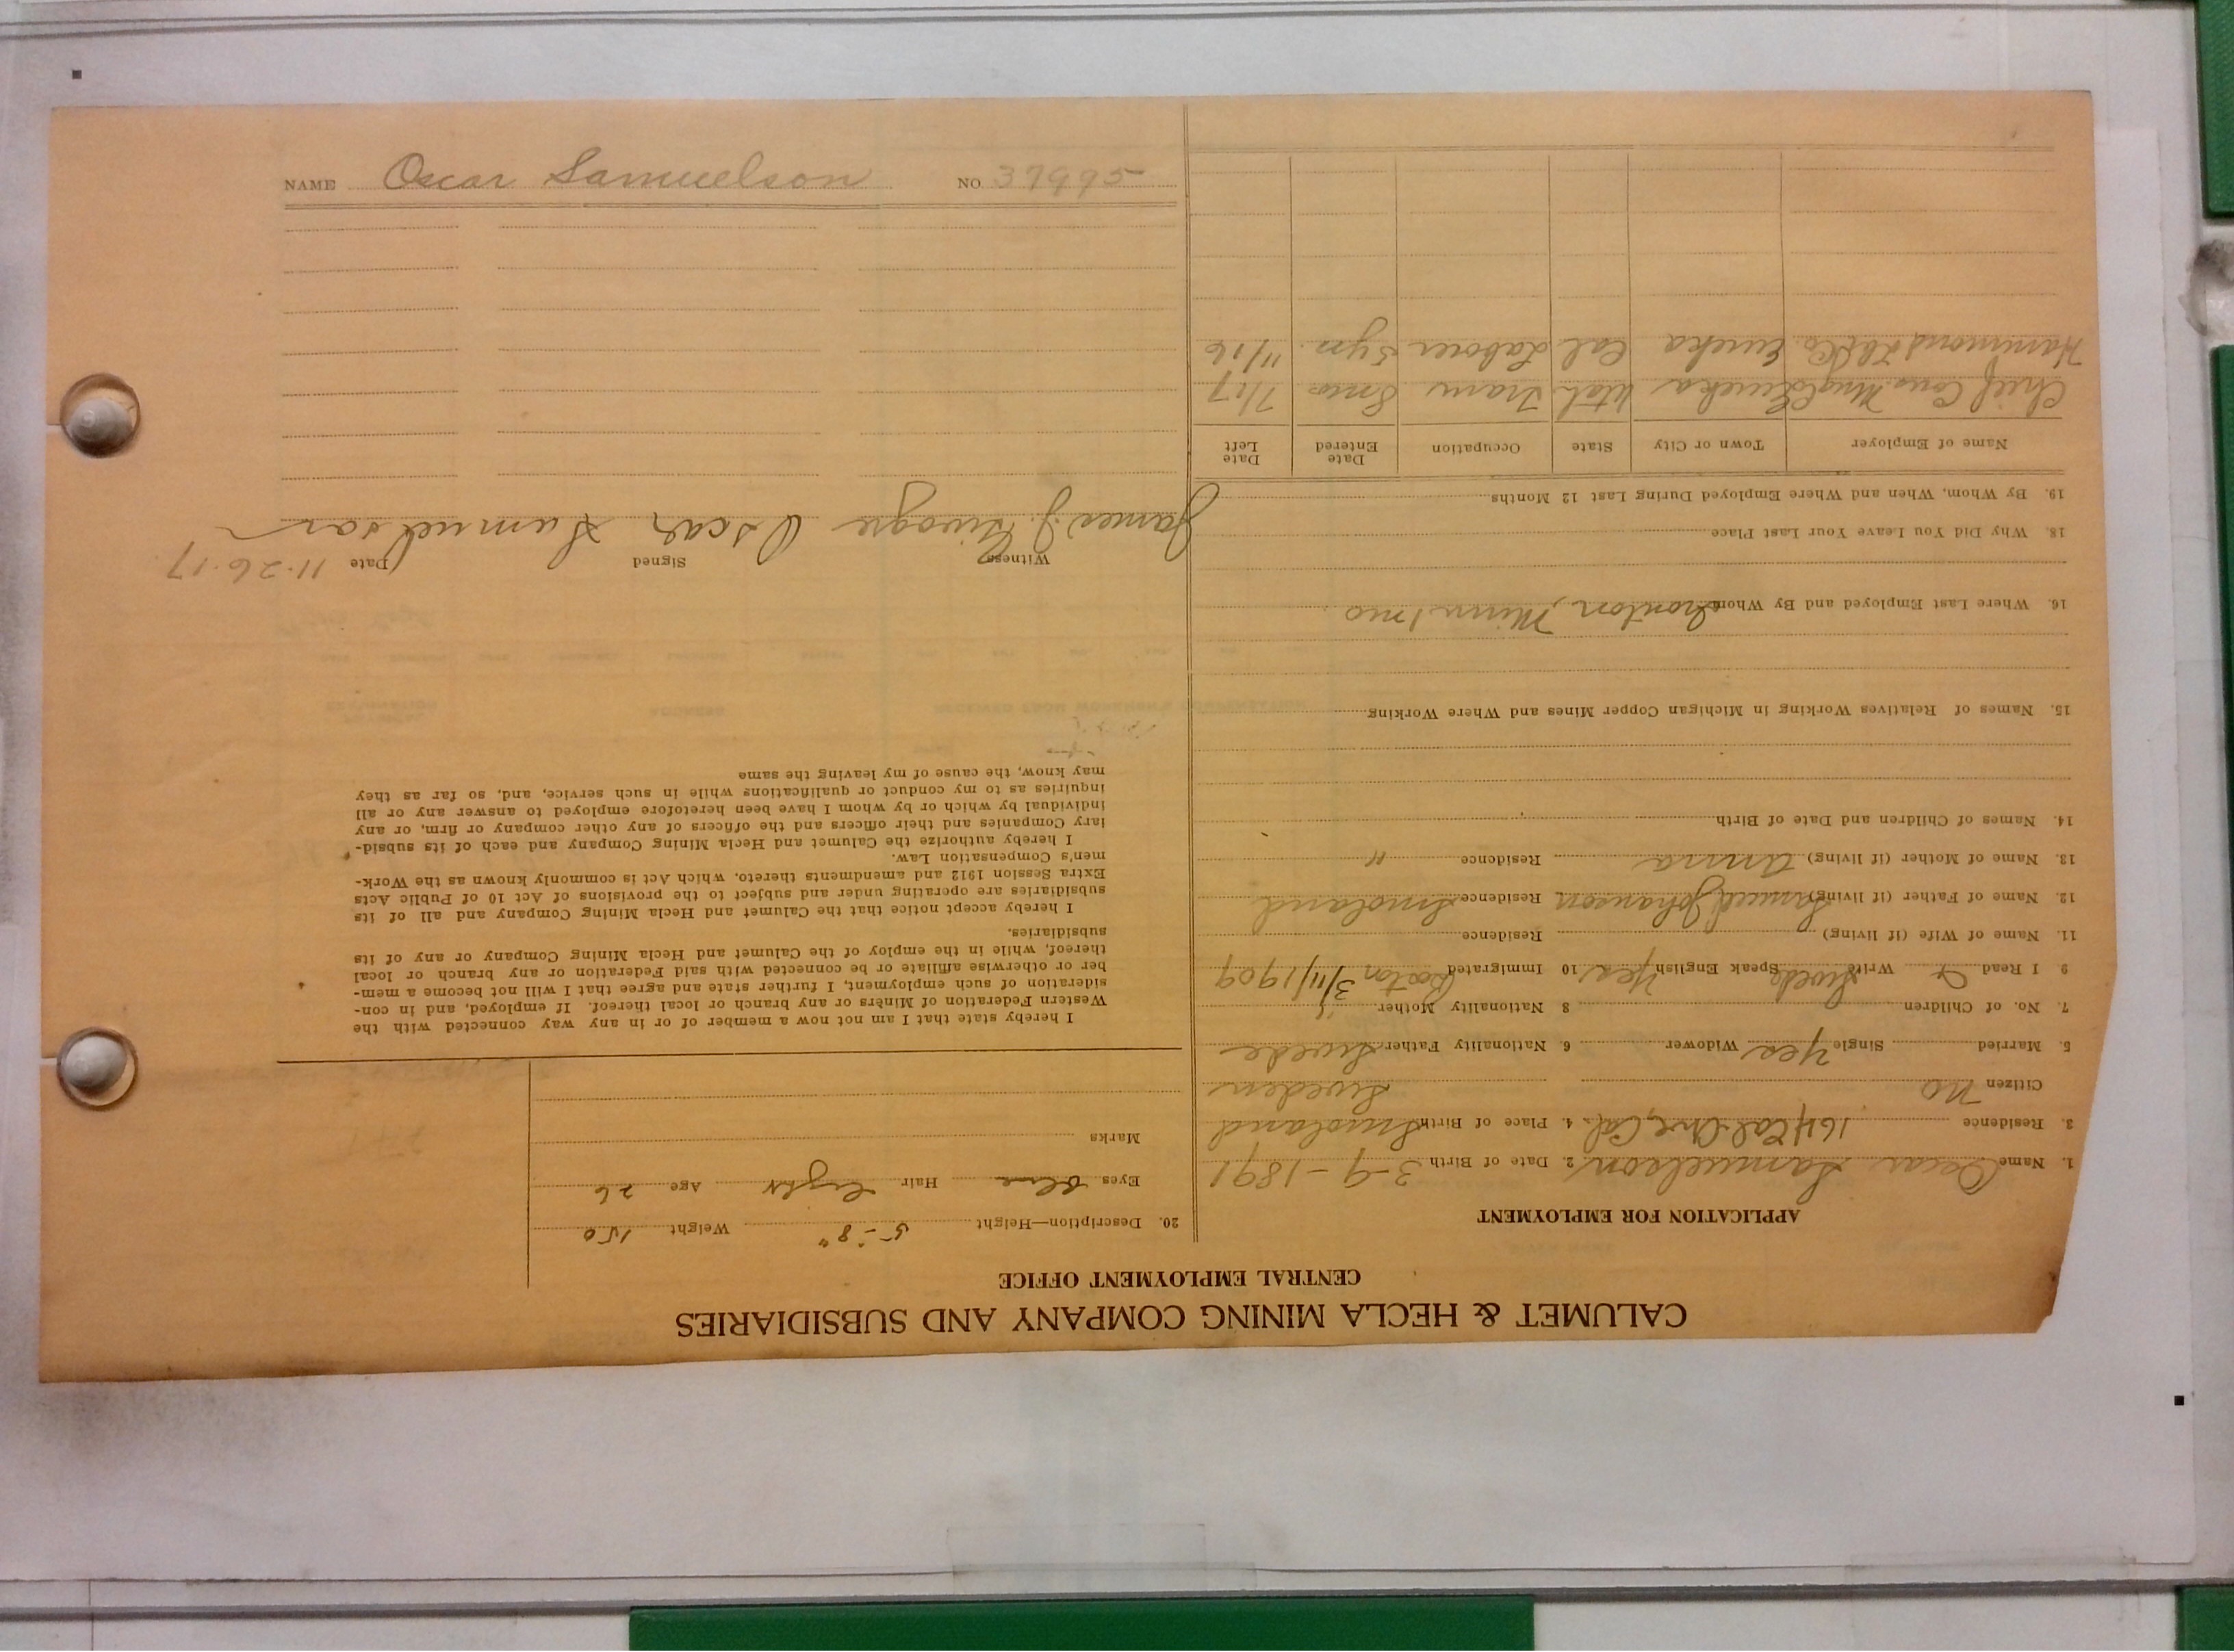 CALUMET & HECLA MINING COMPANY AND SUBSIDIARIES
CENTRAL EMPLOYMENT OFFICE
APPLICATION FOR EMPLOYMENT
1. Name Oscar Samuelson 2. Date of Birth 3-9-1891
3. Residence 164 Cal. Ave, Cal. 4. Place of Birth Smoland
Citizen No Sweden
5. Married Single Yes Widower 6. Nationality Father Swede
7. No. of Children 8 Nationality Mother "
9 I Read Write Swede Speak English Yes 10 Immigrated Boston 3/11/1909
11. Name of Wife (if living) Residence
12. Name of Father (if living) Samuel Johanson Residence Smoland
13. Name of Mother (if living) Anna Residence "
14. Names of Children and Date of Birth
15. Names of Relatives Working in Michigan Copper Mines and Where Working
16. Where Last Employed and By Whom Ironton, Minn 1 mo
18. Why Did You Leave Your Last Place
19. By Whom, When and Where Employed During Last 12 Months
Name of Employer Town or City State Occupation Date Entered Date Left
Chief Cons. Eureka Utah Tram 8 mos 7/17
Hammond Eureka Cal Laborer 5 yrs. 11/16
20. Description—Height 5-8" Weight 150
Eyes blue Hair light Age 26
Marks
I hereby state that I am not now a member of or in any way connected with the
Western Federation of Miners or any branch or local thereof. If employed, and in con-
sideration of such employment, I further state and agree that I will not become a mem-
ber or otherwise affiliate or be connected with said Federation or any branch or local
thereof, while in the employ of the Calumet and Hecla Mining Company or any of its
subsidiaries.
I hereby accept notice that the Calumet and Hecla Mining Company and all of its
subsidiaries are operating under and subject to the provisions of Act 10 of Public Acts
Extra Session 1912 and amendments thereto, which Act is commonly known as the Work-
men's Compensation Law.
I hereby authorize the Calumet and Hecla Mining Company and each of its subsid-
iary Companies and their officers and the officers of any other company or firm, or any
individual by which or by whom I have been heretofore employed to answer any or all
inquiries as to my conduct or qualifications while in such service, and, so far as they
may know, the cause of my leaving the same
Witness Signed Date 11-26-17
James J. Oscar Samuelson
NAME Oscar Samuelson NO 37995